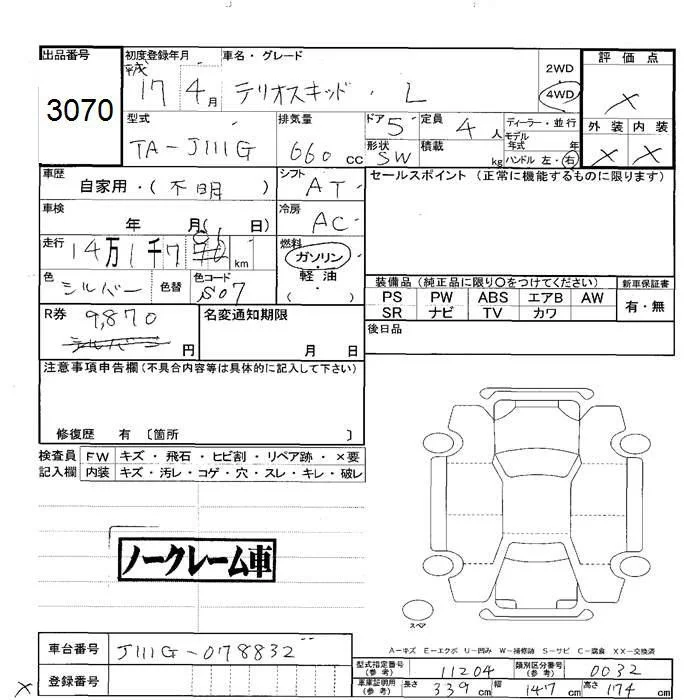 出品番号 初度登録年月 車名・グレード 評価点
3070 平成 17 4月 テリオスキッド・L 2WD 4WD ×
型式 排気量 ドア 定員 ディーラー・並行 外装 内装
TA-J111G 660 cc 5 4人 モデル年式 年 × ×
形状 SW 積載 kg ハンドル 左・右
車歴 シフト セールスポイント (正常に機能するものに限ります)
自家用・(不明) AT
車検 冷房
年 月( 日) AC
走行 燃料
14万1千7 km ガソリン
色 色替 色コード 軽油
シルバー S07 ( )
装備品 (純正品に限り〇をつけてください) 新車保証書
PS PW ABS エアB AW 有・無
SR ナビ TV カワ
R券 名変通知期限 後日品
9,870
円 月 日
注意事項申告欄(不具合内容等は具体的に記入して下さい)
修復歴 有 〔箇所 〕
検査員 FW キズ・飛石・ヒビ割・リペア跡・×要
記入欄 内装 キズ・汚レ・コゲ・穴・スレ・キレ・破レ
ノークレーム車
スペア
A-キズ E-エクボ U-凹み W-補修跡 S-サビ C-腐食 XX-交換済
車台番号 J111G-078832
型式指定番号 (参考) 11204 類別区分番号 (参考) 0032
× 登録番号
車庫証明用 (参考) 長さ 339cm 幅 147cm 高さ 174cm